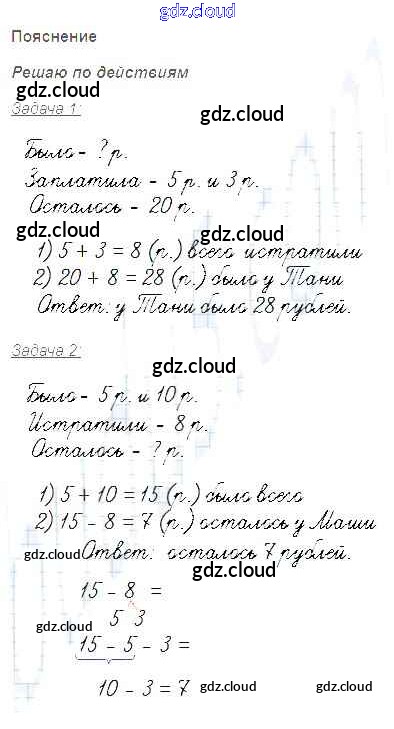 gdz.cloud
Пояснение
Решаю по действиям
gdz.cloud
Задача 1:
gdz.cloud
Было - ? р.
gdz.cloud
Заплатила - 5 р. и 3 р.
Осталось - 20 р.
gdz.cloud gdz.cloud
1) 5 + 3 = 8 (р.) всего истратили
2) 20 + 8 = 28 (р.) было у Тани
Ответ: у Тани было 28 рублей.
Задача 2:
gdz.cloud
Было - 5 р. и 10 р.
Истратили - 8 р.
Осталось - ? р.
gdz.cloud
1) 5 + 10 = 15 (р.) было всего
2) 15 - 8 = 7 (р.) осталось у Маши
gdz.cloud Ответ: осталось 7 рублей.
gdz.cloud
15 - 8 =
5 3
gdz.cloud
15 - 5 - 3 =
10 - 3 = 7 gdz.cloud gdz.cloud